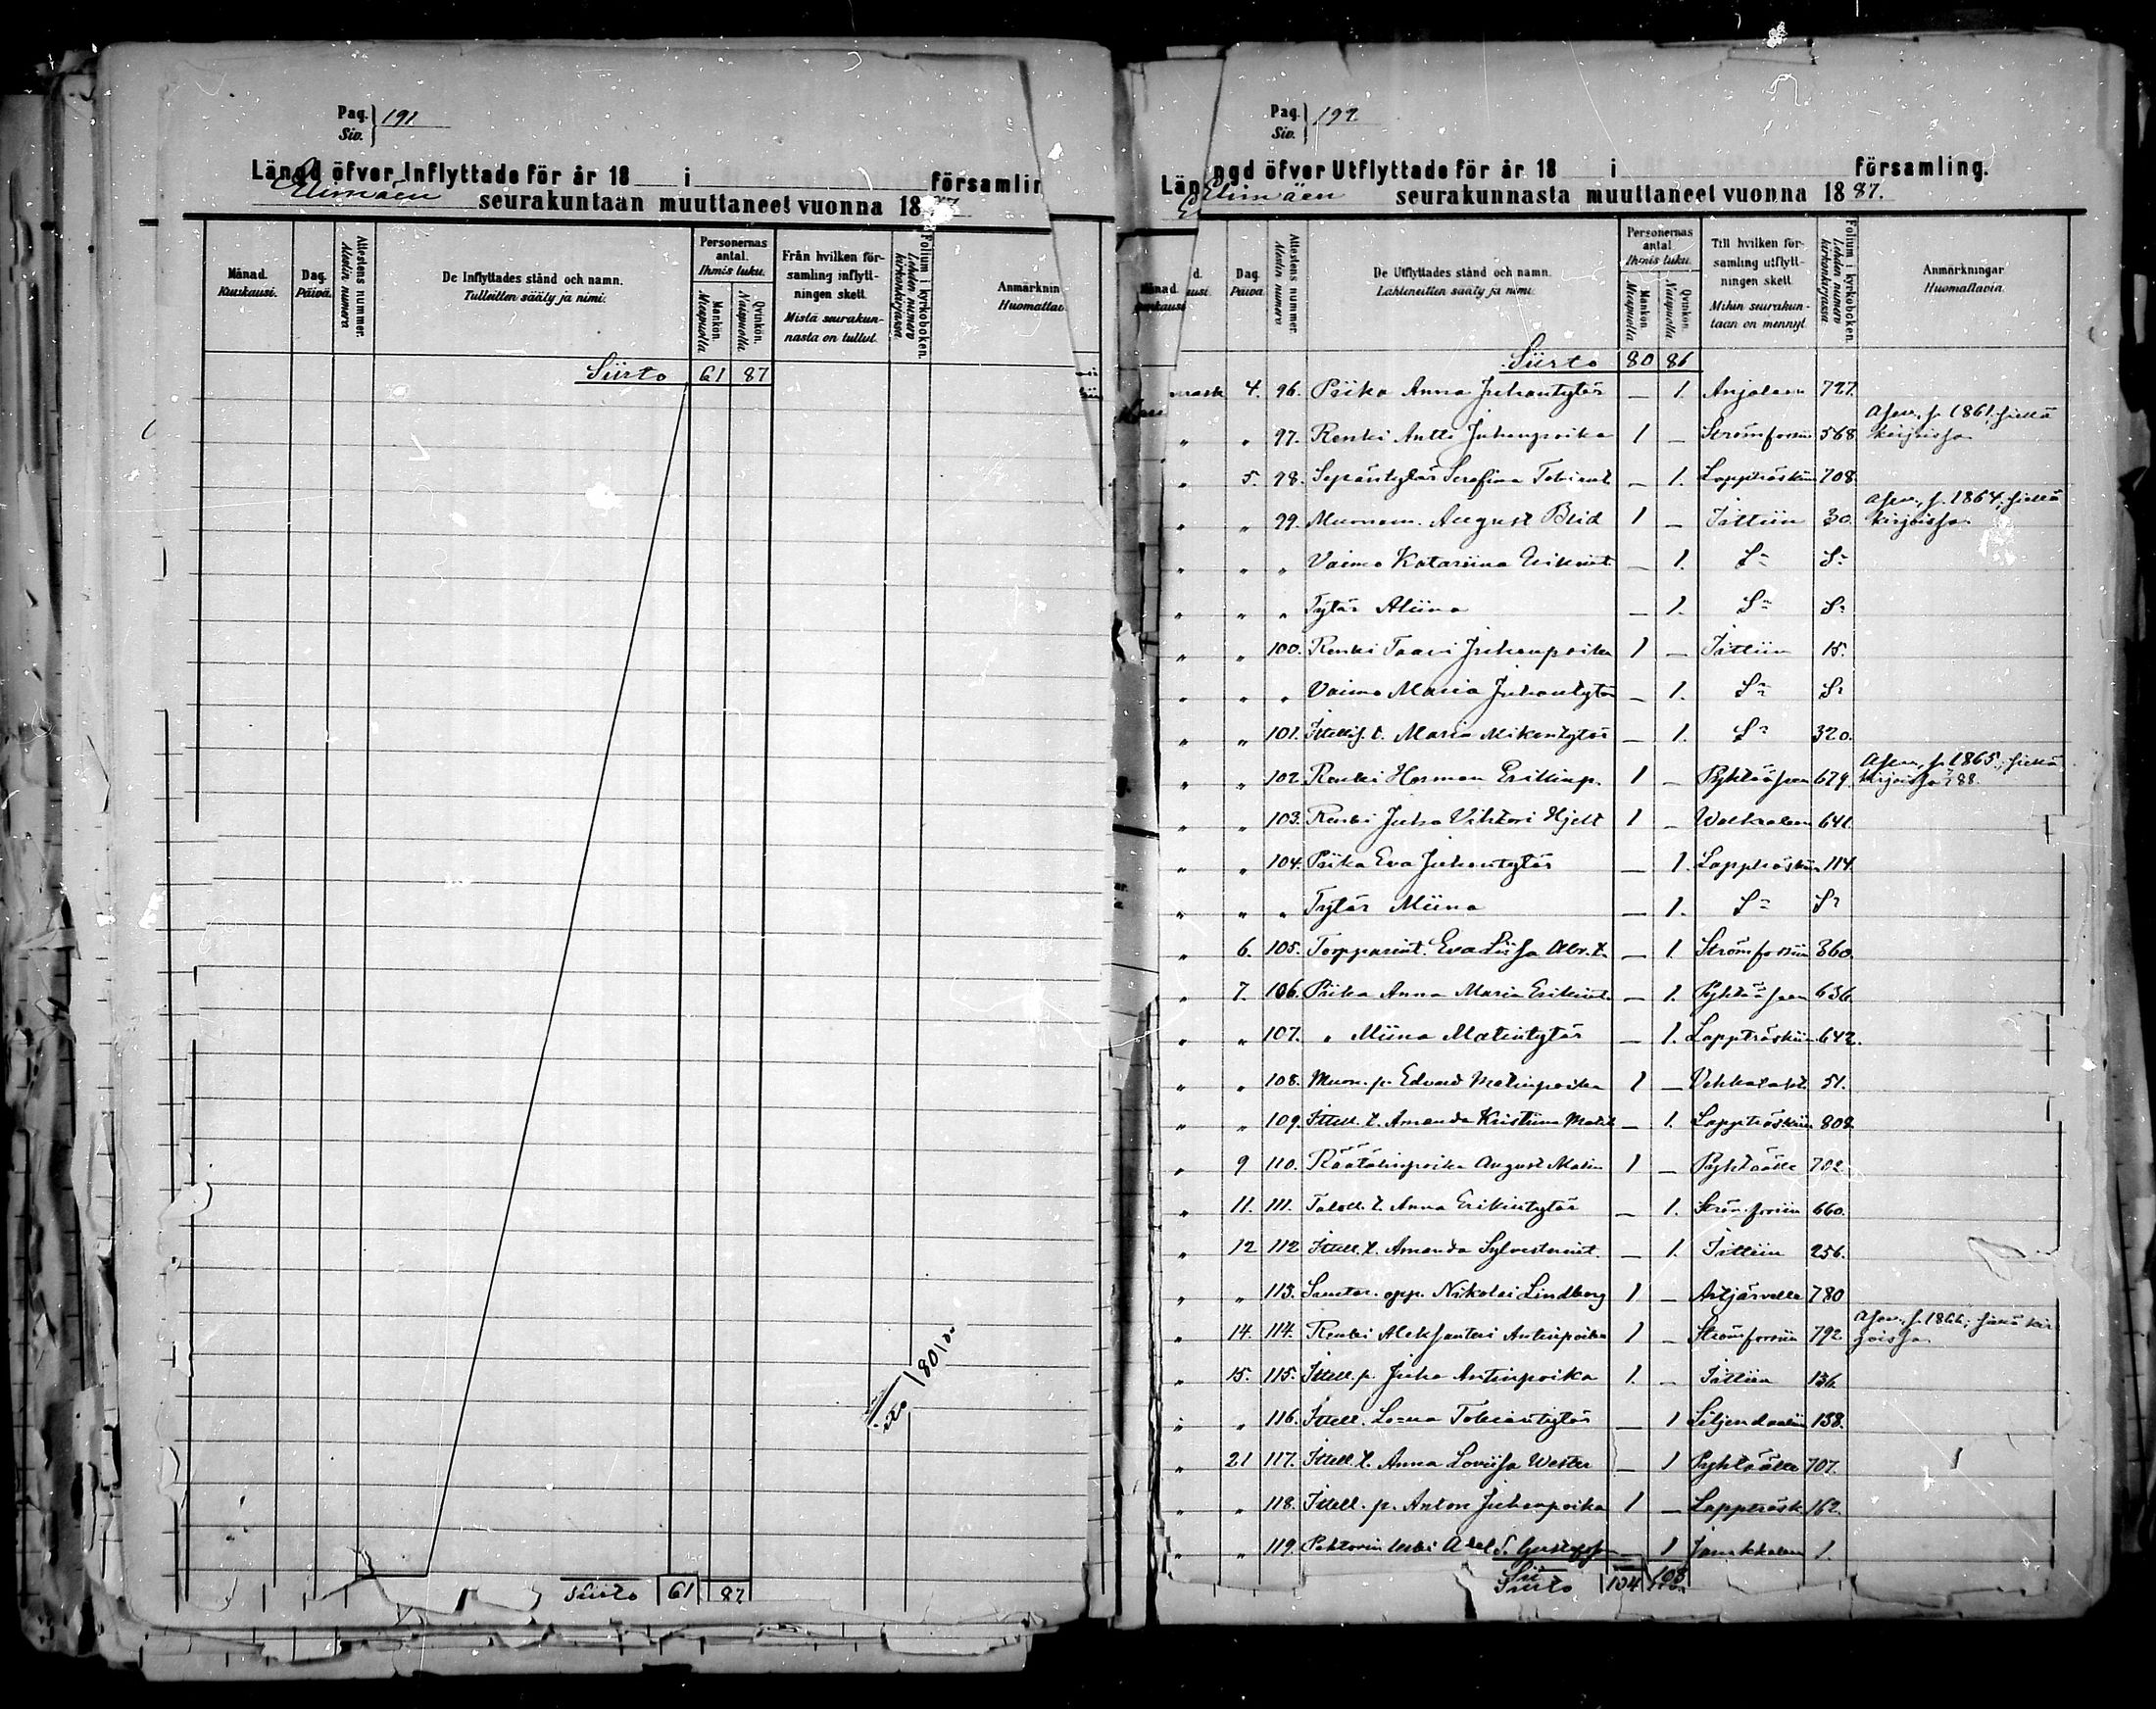 Pag. Siv. 191
Längd öfver Inflyttade för år 18 i församlin
Elimäen seurakuntaan muuttaneet vuonna 1887
Månad. Kuukausi.
Dag. Päivä.
Attestens nummer. Alestin numero
De Inflyttades stånd och namn. Tulleitten sääty ja nimi.
Personernas antal. Ihmis luku.
Mankön. Miespuolia
Qvinkön. Naispuolia
Från hvilken församling inflyttningen skett. Mistä seurakunnasta on tullut.
Folium i kyrkoboken. Lehden numero kirkonkirjassa
Anmärknin Huomattav
Siirto 61 87
Siirto 61 87
Pag. Siv. 192
Längd öfver Utflyttade för år 18 i församling.
Elimäen seurakunnasta muuttaneet vuonna 1887.
Månad.
Dag. Päivä
Attestens nummer. Alestin numero
De Utflyttades stånd och namn. Lähteneitten sääty ja nimi.
Personernas antal. Ihmis luku.
Mankön. Miespuolia
Qvinkön. Naispuolia
Till hvilken församling utflyttningen skett. Mihin seurakuntaan on mennyt.
Folium i kyrkoboken. Lehden numero kirkonkirjassa
Anmärkningar Huomattavia.
Siirto 80 86
4. 96. Piika Anna Juhantytär — 1. Anjalaan 727.
" " 97. Renki Antti Juhanpoika 1 — Strömforsiin 568
" 5. 98. Sepäntytär Serafina Tobiant. — 1. Lappträskiin 708.
" " 99. August Blid 1 — Iittiin 30.
" " " Vaimo Katariina Erikint. — 1.
" " " Tytär Aliina — 1.
" " 100. Renki Taavi Juhanpoika 1 — Iittiin 15.
" " " Vaimo Maria Juhantytär — 1.
" " 101. Maria Mikontytär — 1. 320.
" " 102. Renki Herman Erikinp. 1 — Pyhtääseen 679.
" " 103. Renki Juho Vihtori Hjelt 1 — Walkealaan 641.
" " 104. Piika Eva Juhantytär — 1. Lappträskiin 114.
" " " Tytär Miina — 1.
" 6. 105. Torpparint. Eva Liisa — 1. Strömforsiin 360.
" 7. 106. Piika Anna Maria Erikint. — 1. Pyhtääseen 636.
" " 107. " Miina Matintytär — 1. Lappträskiin 642.
" " 108. Muon. p. Edvard Matinpoika 1 — Vehkalaht. 51.
" " 109. Itsell. t. Amanda Kristiina Matit — 1. Lappträskiin 808.
" 9 110. Räätälinpoika August Matin 1 — Pyhtäälle 702.
" 11. 111. Taloll. t. Anna Erikintytär — 1. Strömforsiin 660.
" 12 112 Itsell. t. Amanda Sylvesterint. — 1. Iittiin 256.
" " 113. opp. Nikolai Lindberg 1 — Artjärvelle 780
" 14. 114. Renki Aleksanteri Antinpoika 1 — Strömforsiin 792
" 15. 115. Itsell. p. Juho Antinpoika 1. — Iittiin 136
" " 116. Itsell. Leena Tobiantytär — 1 Liljendaaliin 158.
" 21 117. Itsell. t. Anna Loviisa Wester — 1 Pyhtäälle 707.
" " 118. Itsell. p. Anton Juhanpoika 1 — Lappträsk. 162.
" " 119. leski — 1 Janakkalaan 1.
Siirto 104